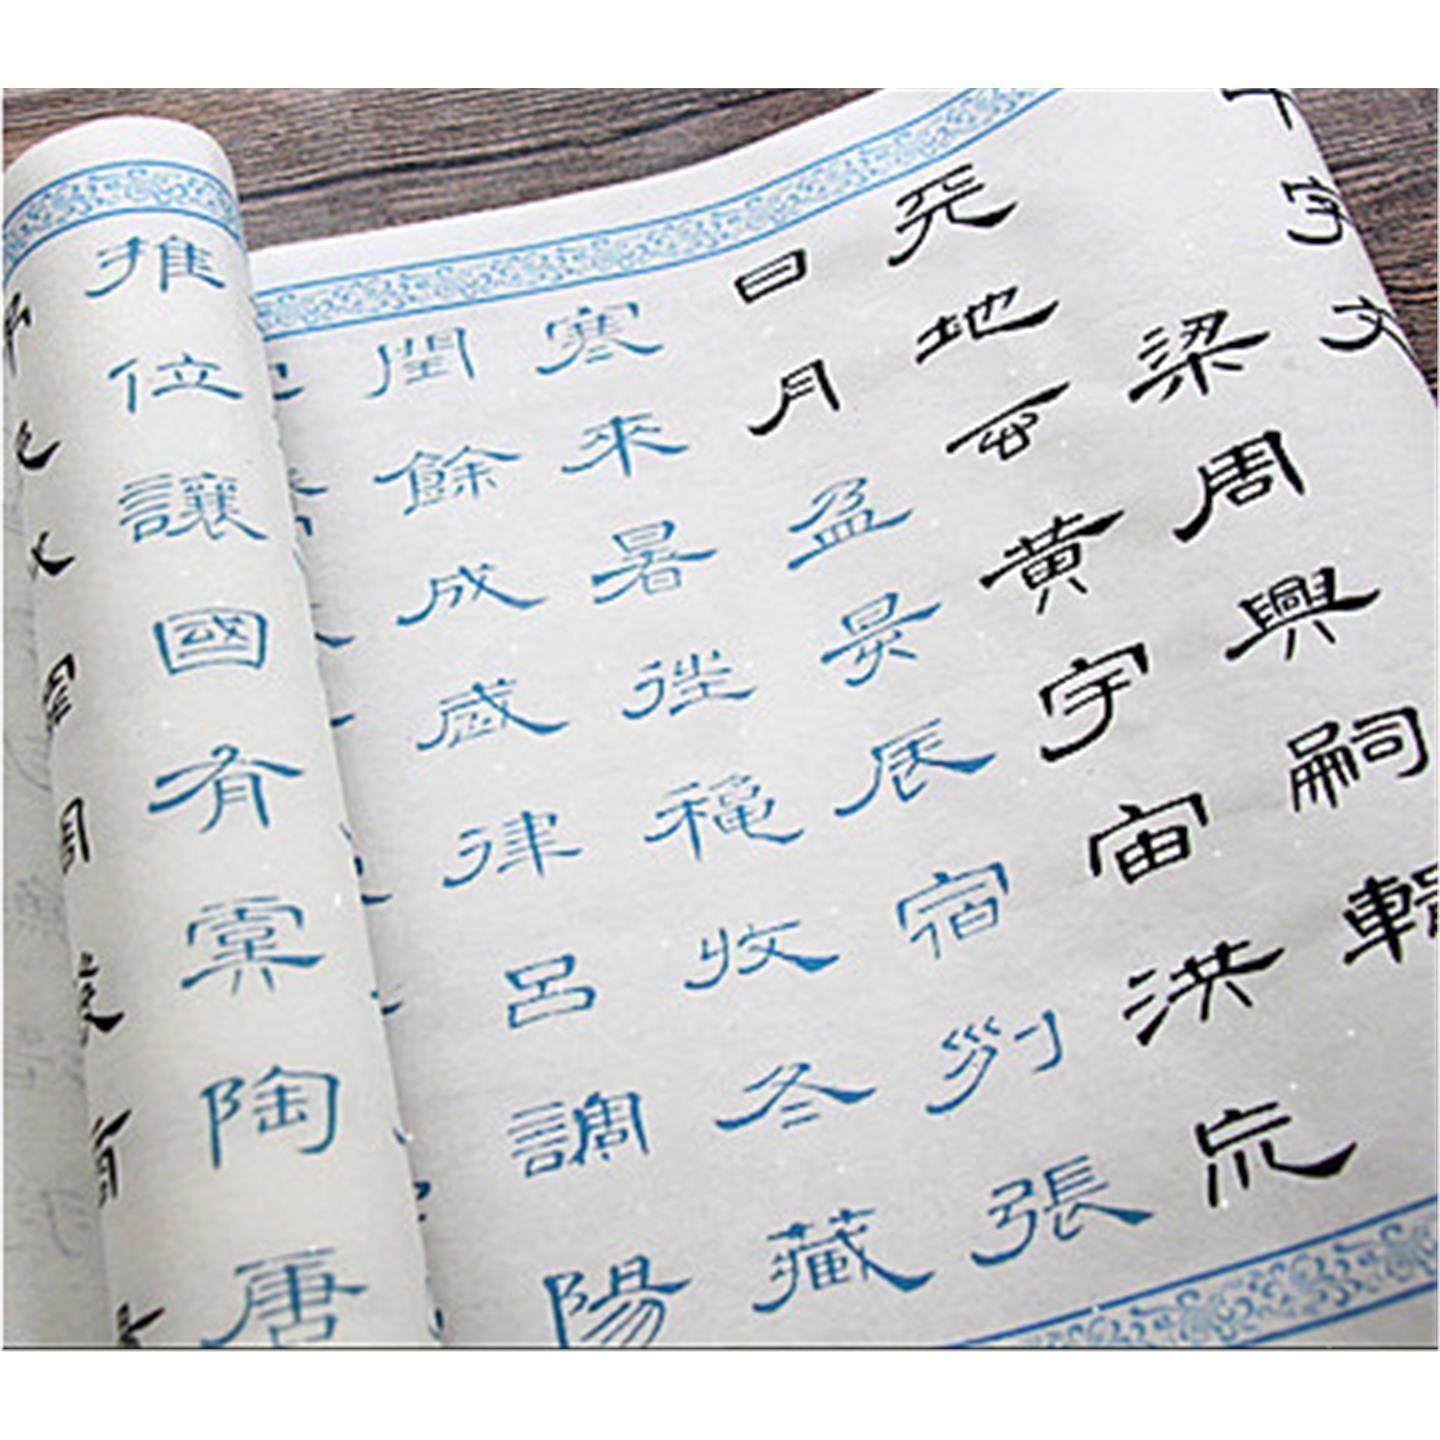 千字文
梁周興嗣輯
天地玄黃宇宙洪荒
日月盈昃辰宿列張
寒來暑往穐收冬藏
閏餘成歲律呂調陽
推位讓國有虞陶唐